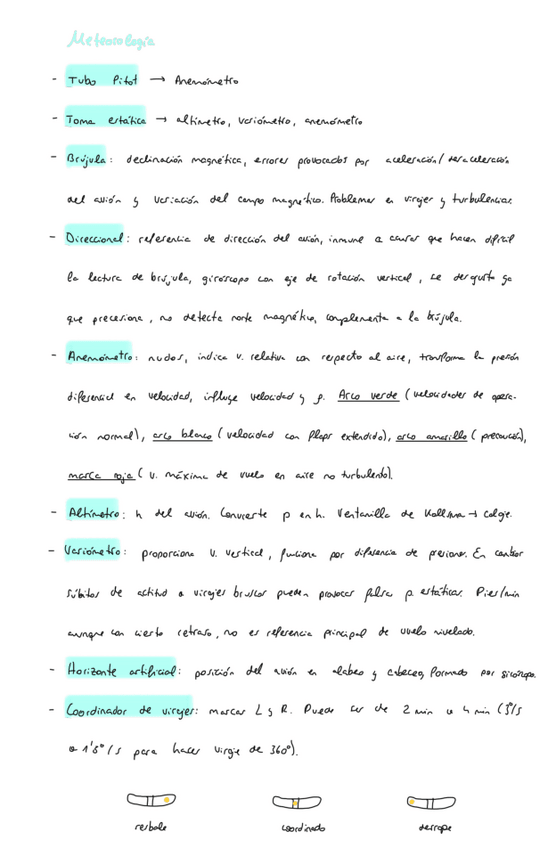 Meteorología
- Tubo Pitot → Anemómetro
- Toma estática → altímetro, variómetro, anemómetro
- Brújula: declinación magnética, errores provocados por aceleración/desaceleración
del avión y variación del campo magnético. Problemas en virajes y turbulencias.
- Direccional: referencia de dirección del avión, inmune a causas que hacen difícil
la lectura de brújula, giróscopo con eje de rotación vertical, se desgusta ya
que precesiona, no detecta norte magnético, complementa a la brújula.
- Anemómetro: nudos, indica v. relativa con respecto al aire, transforma la presión
diferencial en velocidad, influye velocidad y ρ. Arco verde (velocidades de opera-
ción normal), arco blanco (velocidad con flaps extendido), arco amarillo (precaución),
marca roja (v. máxima de vuelo en aire no turbulento).
- Altímetro: h del avión. Convierte p en h. Ventanilla de Kollsman → calaje.
- Variómetro: proporciona v. vertical, funciona por diferencia de presiones. En cambios
súbitos de actitud o virajes bruscos pueden provocar falsa p. estáticas. Pies/min
aunque con cierto retraso, no es referencia principal de vuelo nivelado.
- Horizonte artificial: posición del avión en alabeo y cabeceo, formado por giróscopo.
- Coordinador de virajes: marcas L y R. Puede ser de 2 min o 4 min (3°/s
o 1'5°/s para hacer viraje de 360°).
resbale coordinado derrape